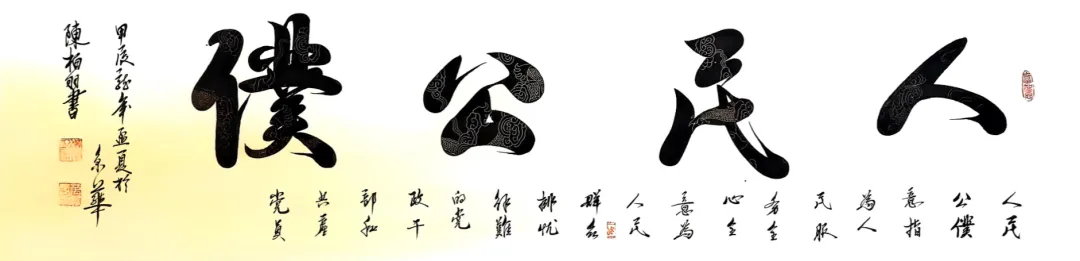 人民公僕
人民
公僕
意指
為人
民服
务全
心全
意為
人民
群众
排忧
解難
的党
政干
部和
共產
党員
甲辰龍年孟夏於
京華
陳柏書